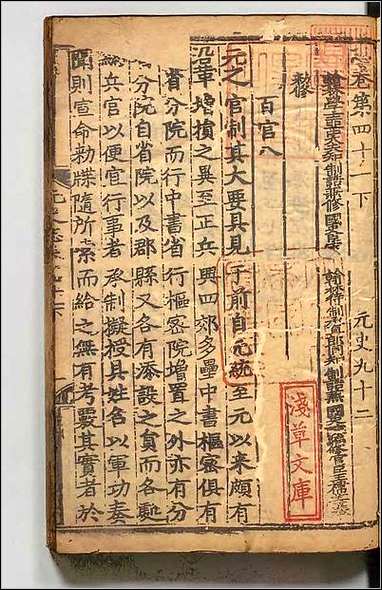 志卷第四十一下 元史九十二
翰林學士亞中大夫知制誥兼修國史臣 翰林待制承直郎同知制誥兼國史院編修官臣
敕修
百官八
元之官制其大要具見于前自元統至元以來頗有
沿革增損之異至正兵興四郊多壘中書樞密俱有
省分院而行中書省行樞密院增置之外亦有分
分院自省院以及郡縣又各有添設之員而各處
總兵官以便宜行事者承制擬授具姓名以軍功奏
聞則宣命勑牒隨所索而給之無有考覈其實者於
淺草文庫